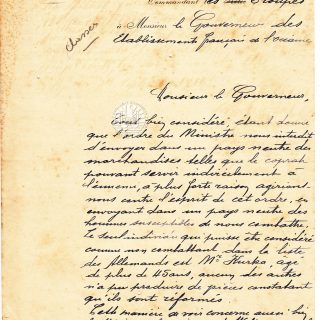 Commandant les Troupes
à Monsieur le Gouverneur des
Etablissement français de l'océanie
classer
Monsieur le Gouverneur,
Tout bien considéré, étant donné
que l'ordre du Ministre nous interdit
d'envoyer dans un pays neutre des
marchandises telles que le coprah
pouvant servir indirectement à
l'ennemi, à plus forte raison agirions
nous contre l'esprit de cet ordre, en
envoyant dans un pays neutre des
hommes susceptibles de nous combattre,
le seul individu qui puisse être considéré
comme non combattant dans la liste
des Allemands est Mr. agé
de plus de 45 ans, aucun des autres
n'a pu produire de pièces constatant
qu'ils sont réformés
Cette manière de voir concerne aussi bien